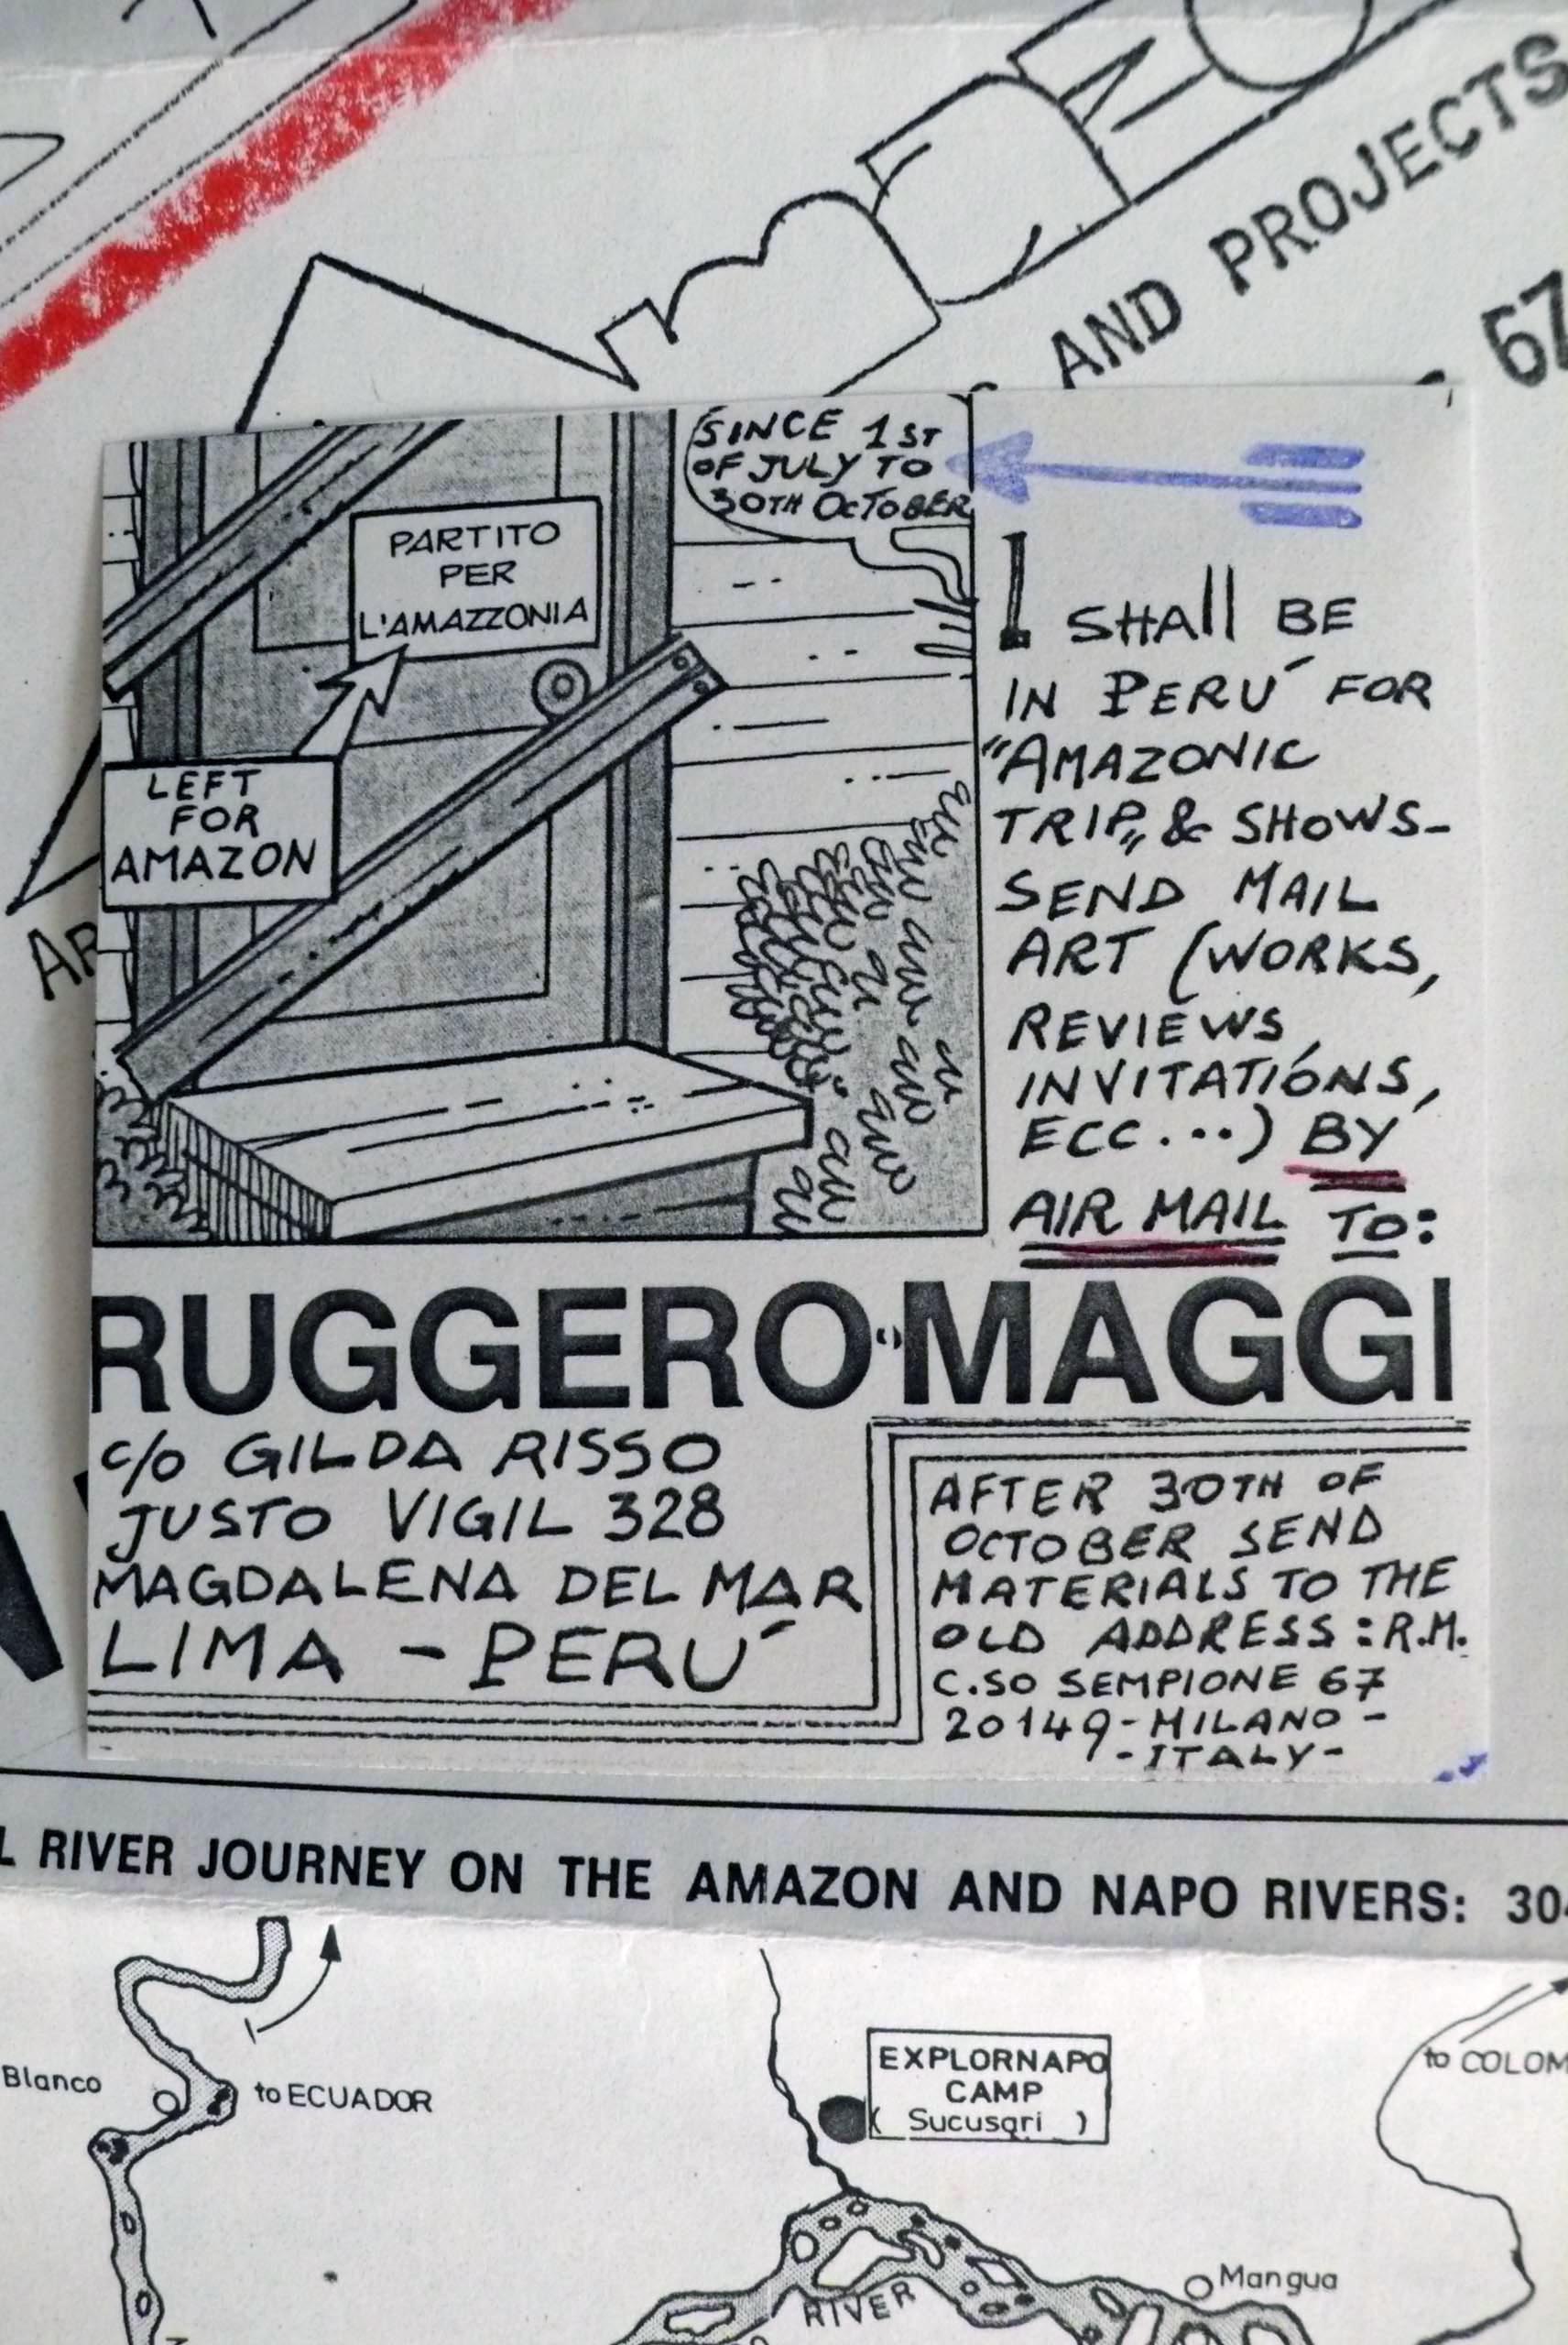 AND PROJECTS
67
SINCE 1ST
OF JULY TO
30TH OCTOBER
PARTITO
PER
L'AMAZZONIA
LEFT
FOR
AMAZON
I SHAll BE
IN PERÚ FOR
"AMAZONIC
TRIP„ & SHOWS-
SEND MAIL
ART (WORKS,
REVIEWS,
INVITATIONS,
ECC...) BY
AIR MAIL TO:
RUGGERO MAGGI
c/o GILDA RISSO
JUSTO VIGIL 328
MAGDALENA DEL MAR
LIMA - PERÚ
AFTER 30TH OF
OCTOBER SEND
MATERIALS TO THE
OLD ADDRESS: R.M.
C.SO SEMPIONE 67
20149-MILANO-
-ITALY-
L RIVER JOURNEY ON THE AMAZON AND NAPO RIVERS: 30
Blanco
to ECUADOR
EXPLORNAPO
CAMP
( Sucusari )
to COLOM
Mangua
RIVER